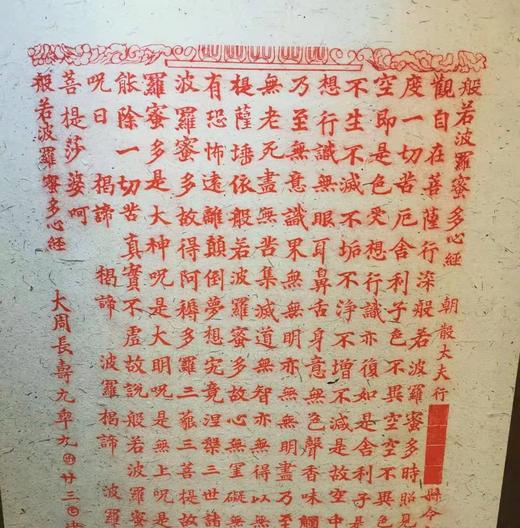 般若波羅蜜多心經 朝散大夫行 縣令
觀自在菩薩行深般若波羅蜜多時照見
度一切苦厄舍利子色不異空空不異色
空即是色受想行識亦復如是舍利子是
不生不滅不垢不淨不增不減是故空中
想行識無眼耳鼻舌身意無色聲香味觸
乃至無意識界無無明亦無無明盡乃至
無老死盡無苦集滅道無智亦無得以無
提薩埵依般若波羅蜜多故心無罣礙無
有恐怖遠離顛倒夢想究竟涅槃三世諸
波羅蜜多故得阿耨多羅三藐三菩提故
羅蜜多是大神呪是大明呪是無上呪是
能除一切苦真實不虛故說般若波羅
呪曰 揭諦 揭諦 波羅揭諦 波羅
菩提莎婆呵
般若波羅蜜多心經 大周長壽九 九 廿三